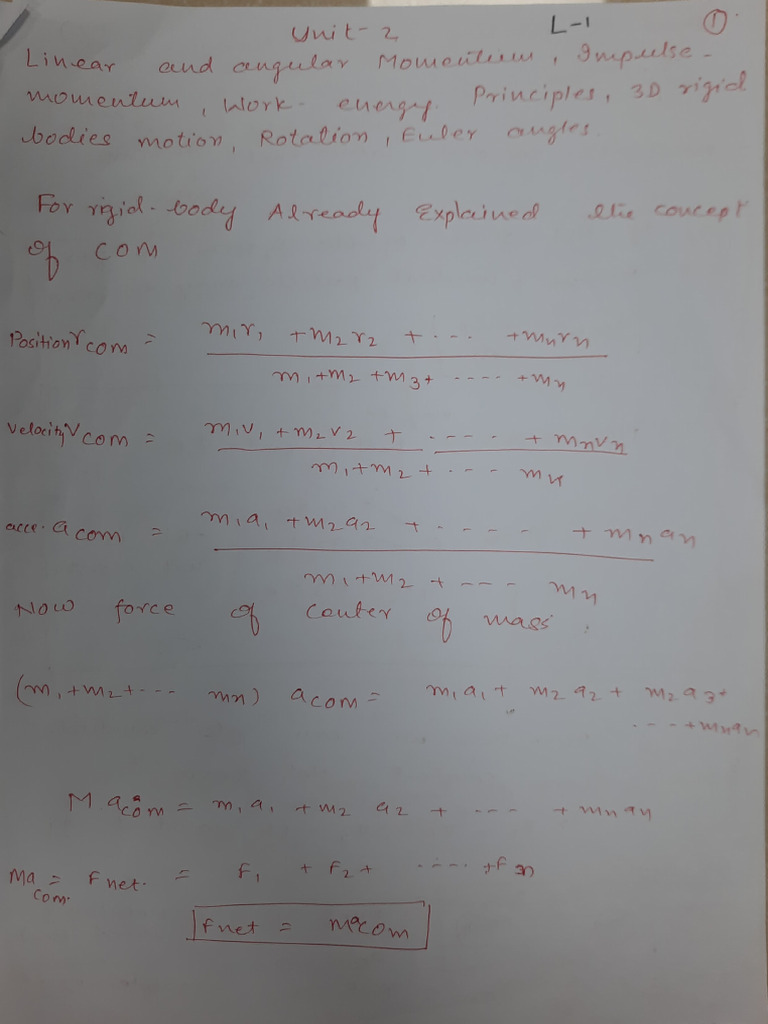 Unit-2 L-1 ①
Linear and angular Momentum, Impulse-
momentum, Work-energy Principles, 3D rigid
bodies motion, Rotation, Euler angles.
For rigid-body Already Explained the concept
of COM
Position r com = m1r1 + m2r2 + ... + mnrn
m1+m2+m3+ ---- +mn
velocity v com = m1v1 + m2v2 + ---- + mnvn
m1+m2+ --- mn
acce. a com = m1a1 + m2a2 + ---- + mnan
m1+m2 + --- mn
Now force of center of mass:
(m1+m2+--- mn) acom = m1a1 + m2a2 + m2a3+
---- +mnan
M acom = m1a1 + m2 a2 + --- + mnan
Ma com. = Fnet. = F1 + F2 + ---- +Fn
Fnet = Macom